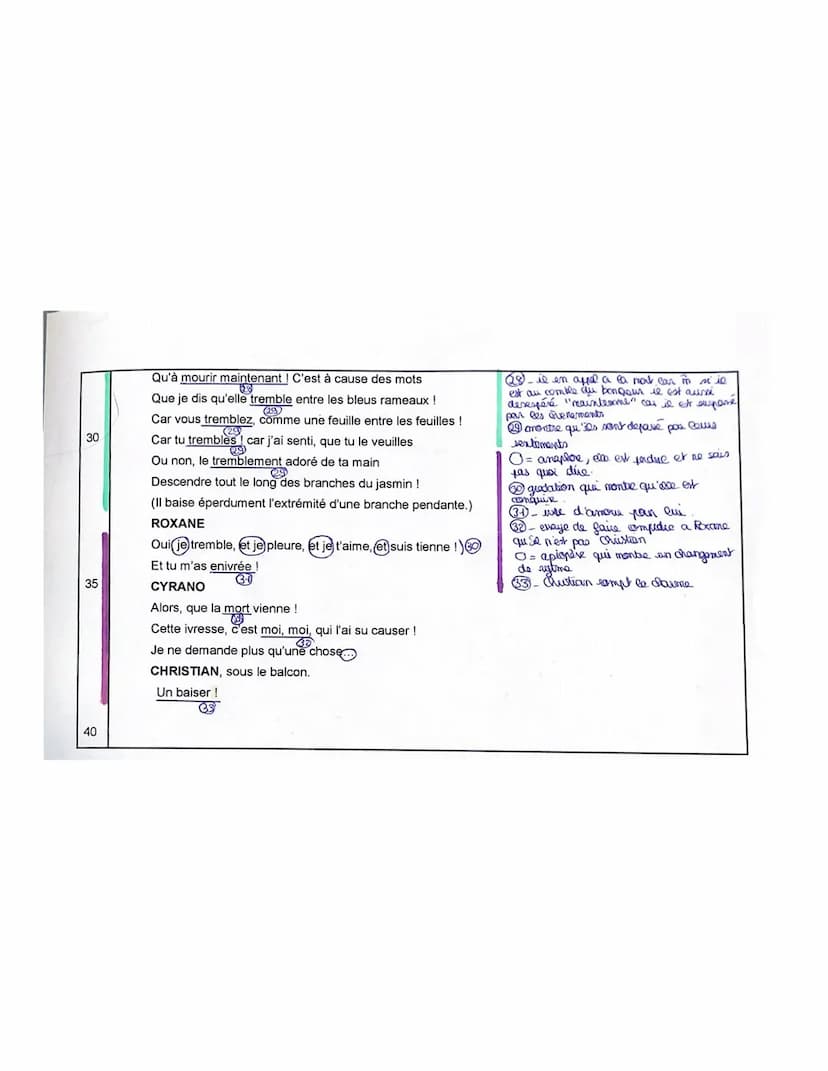 Qu'à mourir maintenant ! C'est à cause des mots
28
Que je dis qu'elle tremble entre les bleus rameaux !
29
Car vous tremblez, comme une feuille entre les feuilles !
29
30
Car tu trembles ! car j'ai senti, que tu le veuilles
29
Ou non, le tremblement adoré de ta main
29
Descendre tout le long des branches du jasmin !
(Il baise éperdument l'extrémité d'une branche pendante.)
ROXANE
Oui je tremble, et je pleure, et je t'aime, et suis tienne !) 30
Et tu m'as enivrée !
31
35
CYRANO
Alors, que la mort vienne !
28
Cette ivresse, c'est moi, moi, qui l'ai su causer !
32
Je ne demande plus qu'une chose...
CHRISTIAN, sous le balcon.
Un baiser !
33
40
28 - il en appel a la mort car m̂ s'il
est au comble du bonheur il est aussi
desespéré "maintenant" car il est
par les évenements
29 montre qu'ils sont depassé par leurs
sentiments
O = anaphore, elle est perdue et ne sais
pas quoi dire.
30 gradation qui montre qu'elle est
conquise.
31 - ivre d'amour pour lui.
32 - essaye de faire comprendre a Roxane
qu'il n'est pas Christian
O = qui montre un changement
de rythme
33 - Christian rompt le charme